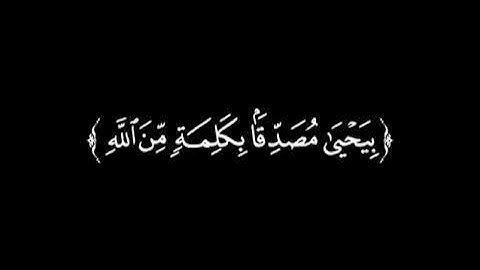 ﴿ بِيَحْيَىٰ مُصَدِّقًۢا بِكَلِمَةٍ مِّنَ ٱللَّهِ ﴾